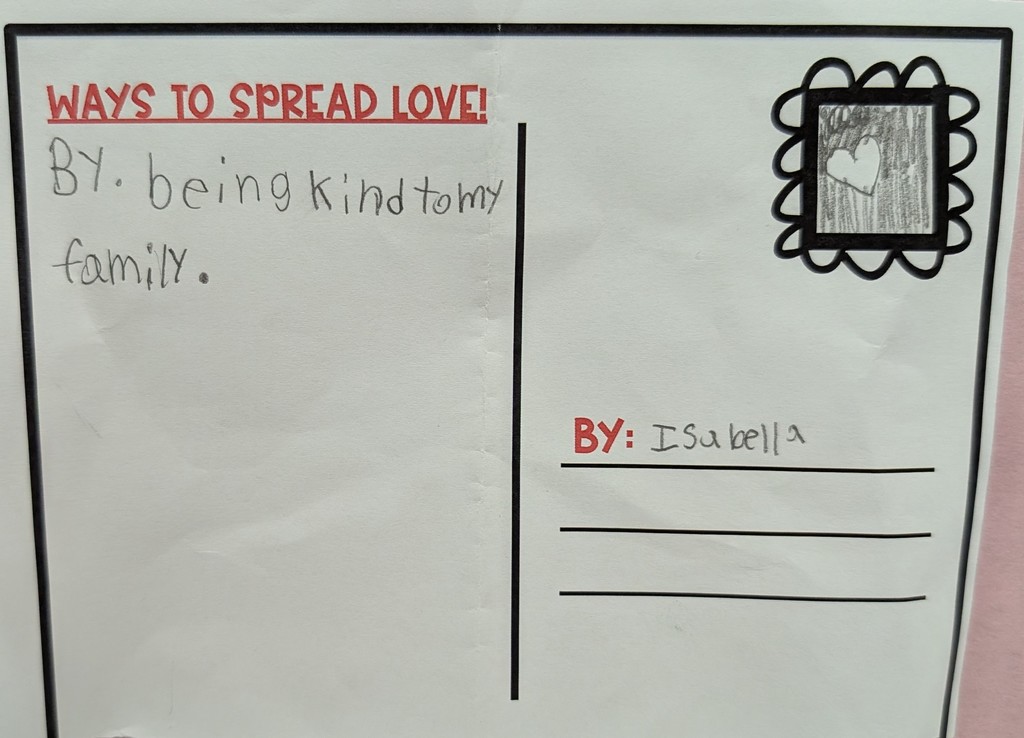 WAYS TO SPREAD LOVE!
BY. being kind to my
family.
BY: Isabella